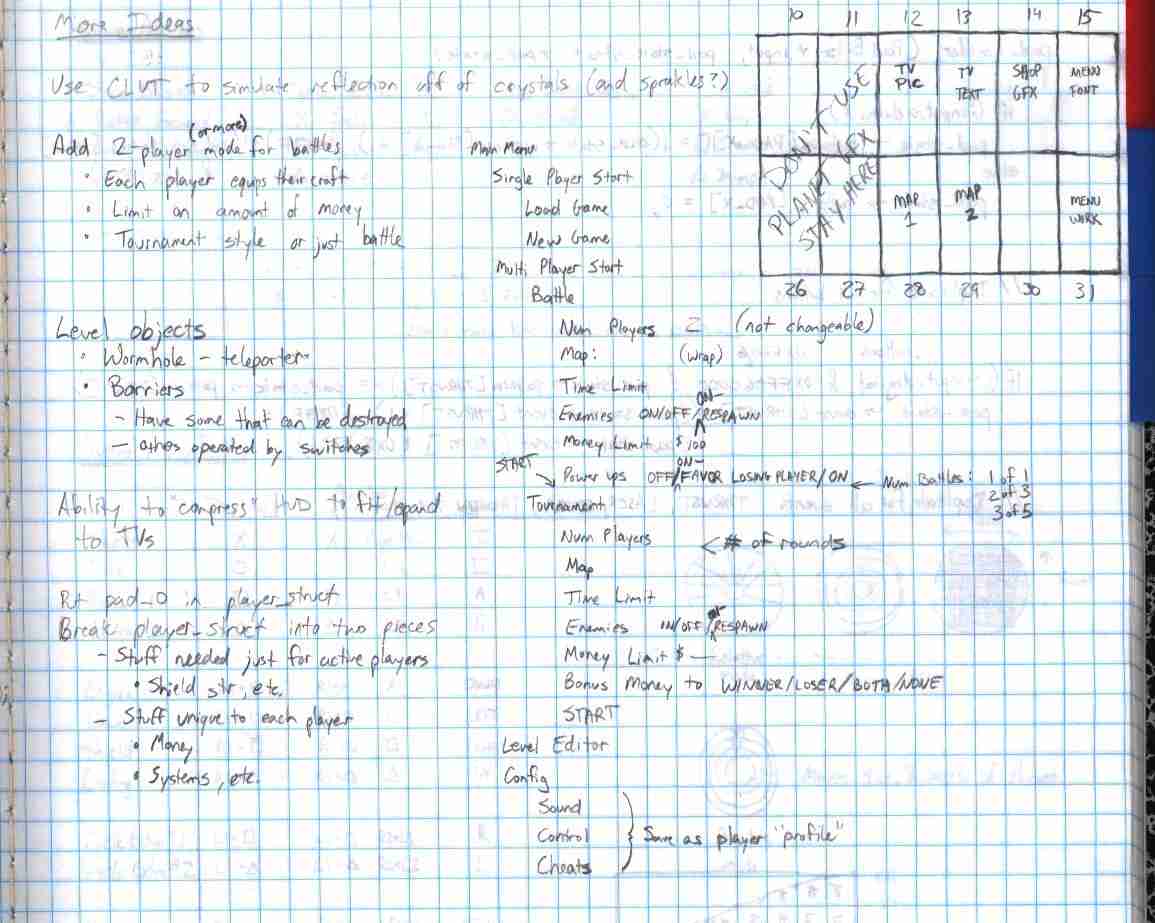 More Ideas
Use CLUT to simulate reflection off of crystals (and sprakles?)
Add 2-player (or more) mode for battles
• Each player equips their craft
• Limit on amount of money
• Tournament style or just battle
Level objects
• Wormhole - teleporter
• Barriers
- Have some that can be destroyed
- others operated by switches
Ability to "compress" HUD to fit/expand
to TVs
Put pad_0 in player_struct
Break player_struct into two pieces
- Stuff needed just for active players
• Shield str, etc.
- Stuff unique to each player
• Money
• Systems, etc.
Main Menu
Single Player Start
Load Game
New Game
Multi Player Start
Battle
Num Players 2 (not changeable)
Map: (wrap)
Time Limit
Enemies ON/OFF/ON-RESPAWN
Money Limit $100
Power ups OFF/ON-FAVOR LOSING PLAYER/ON ← Num Battles: 1 of 1
2 of 3
3 of 5
START
Tournament
Num Players
< # of rounds
Map
Time Limit
Enemies ON/OFF/RESPAWN
Money Limit $ —
Bonus Money to WINNER/LOSER/BOTH/NONE
START
Level Editor
Config
Sound
Control
Cheats
Save as player "profile"
10 11 12 13 14 15
DON'T USE
PLANET GFX
STAY HERE
TV PIC
TV TEXT
SHOP GFX
MENU FONT
MAP 1
MAP 2
MENU WORK
26 27 28 29 30 31